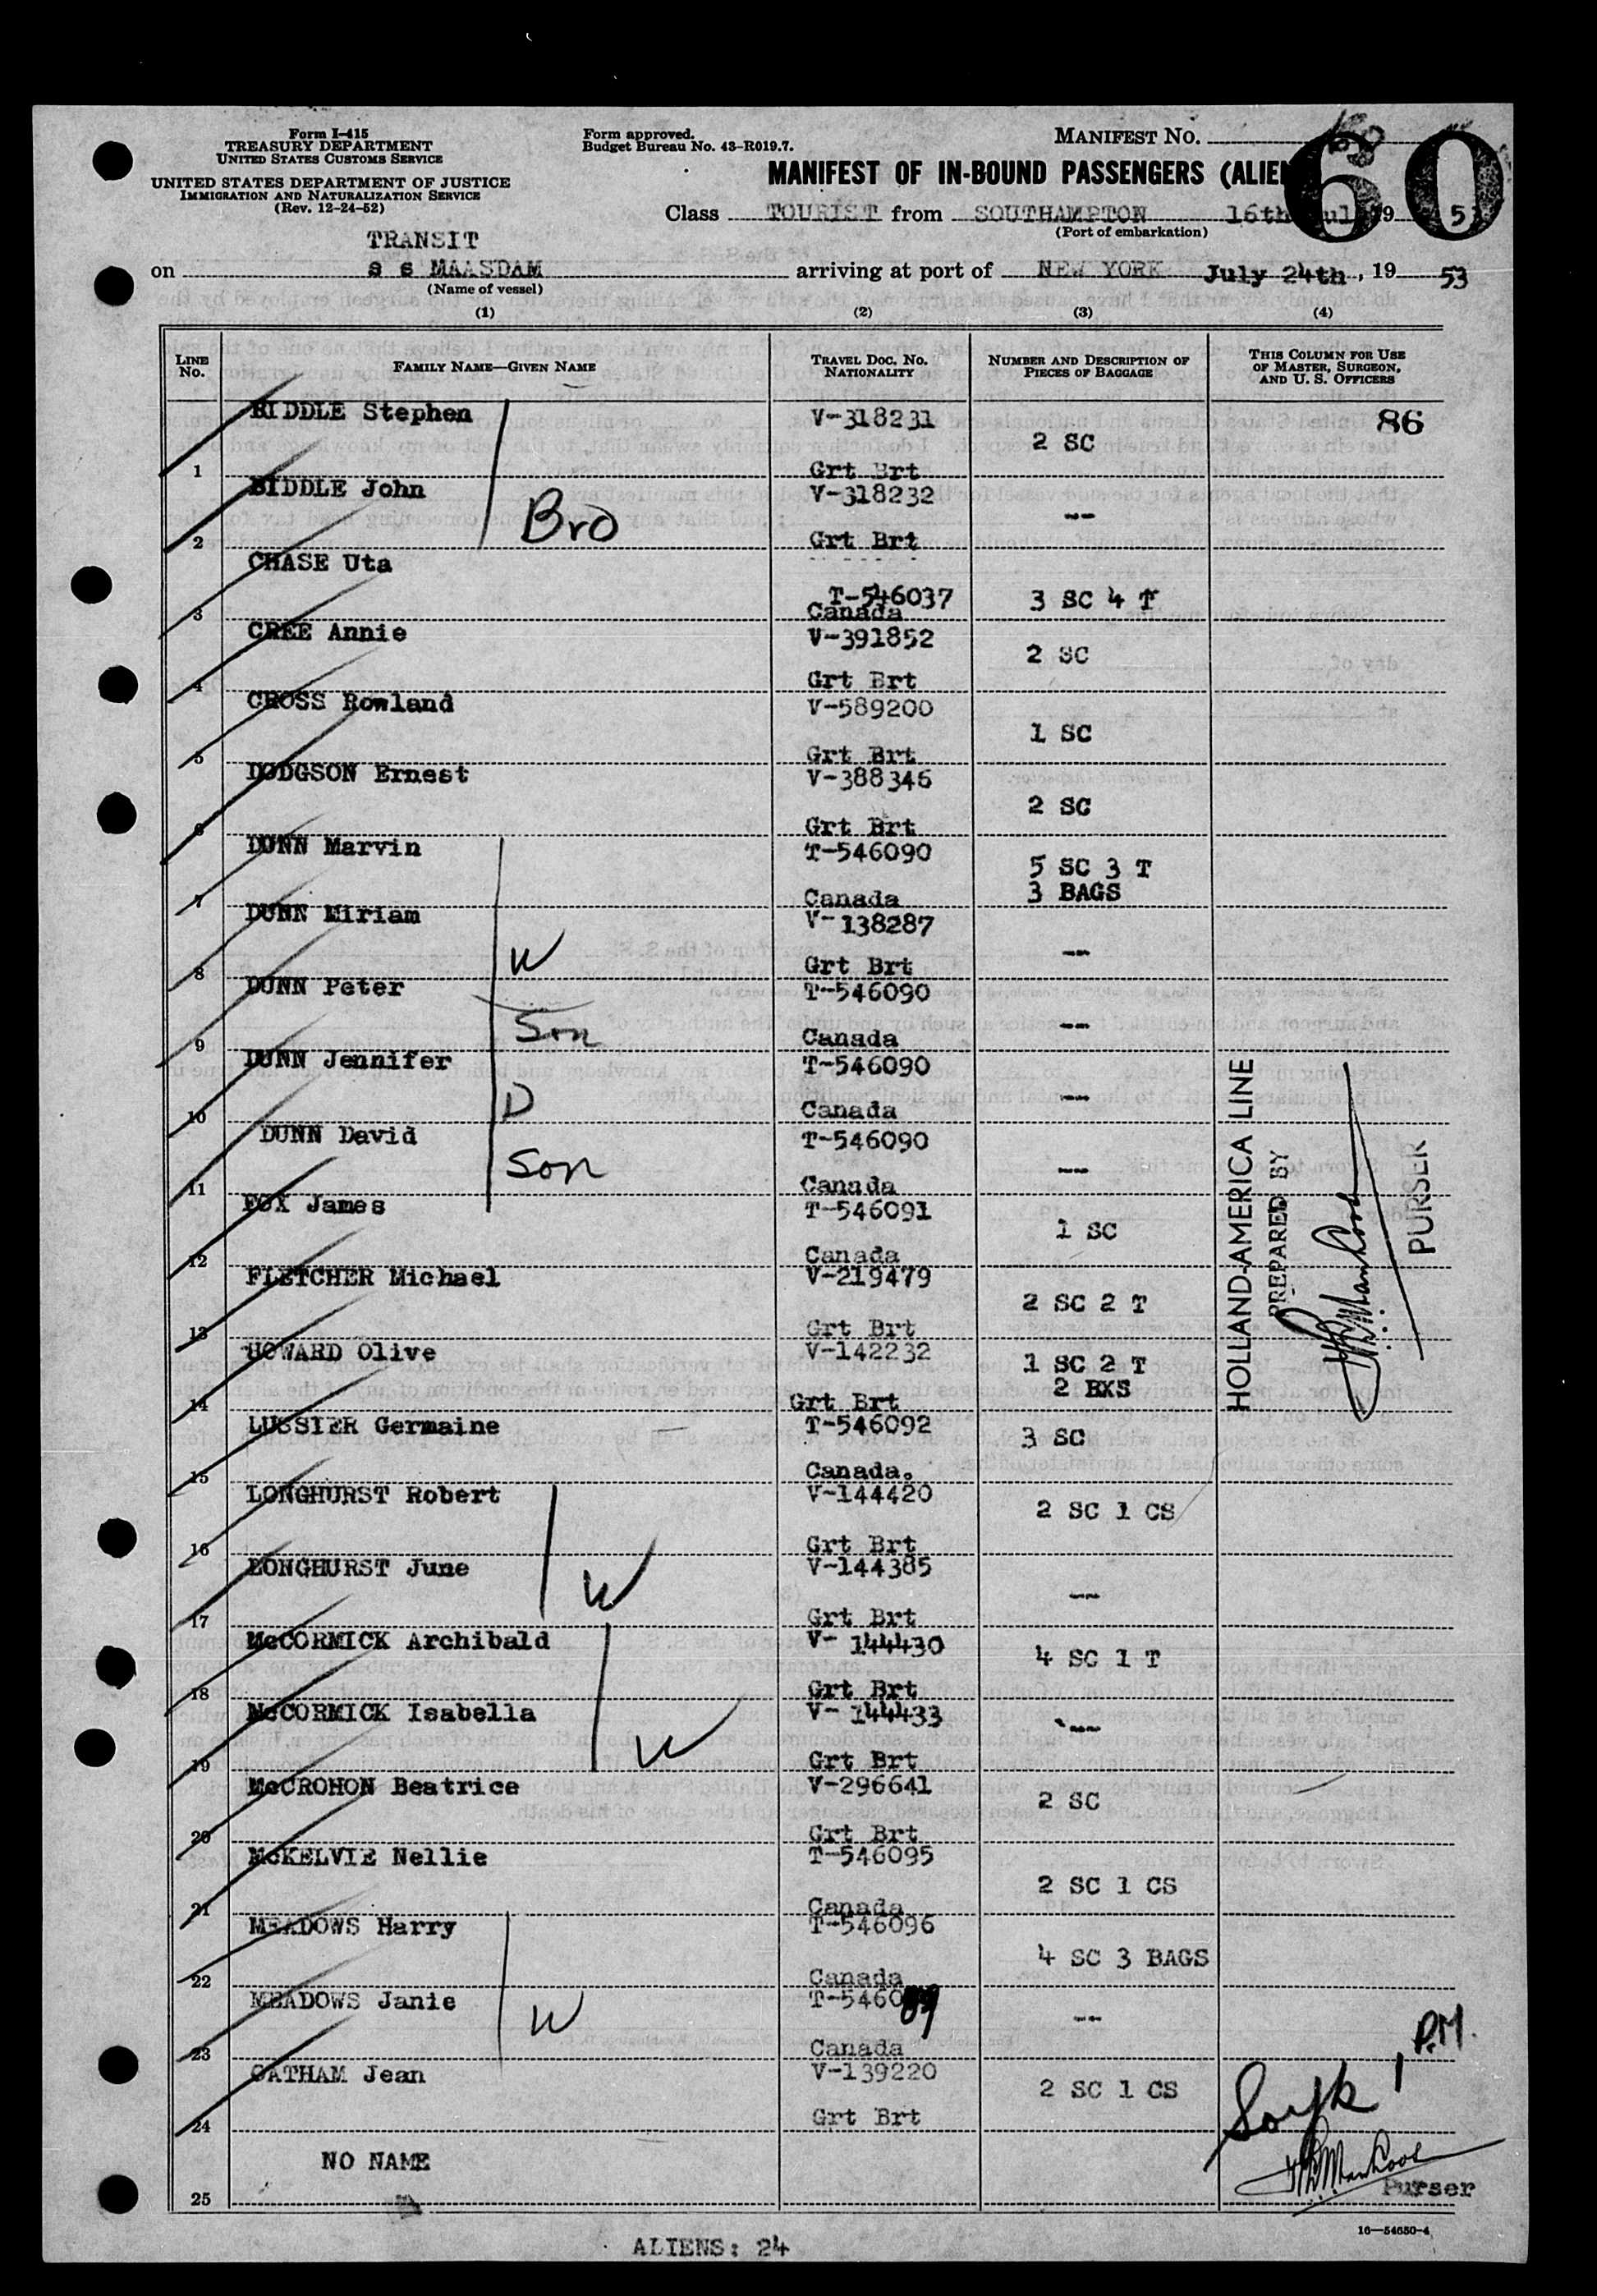 Form I-415
TREASURY DEPARTMENT
UNITED STATES CUSTOMS SERVICE
UNITED STATES DEPARTMENT OF JUSTICE
IMMIGRATION AND NATURALIZATION SERVICE
(Rev. 12-24-52)
Form approved.
Budget Bureau No. 43-R019.7.
MANIFEST NO.
60
MANIFEST OF IN-BOUND PASSENGERS (ALIEN
Class TOURIST from SOUTHAMPTON 16th 19 53
(Port of embarkation)
TRANSIT
on s s MAASDAM arriving at port of NEW YORK July 24th, 19 53
(Name of vessel)
(1) (2) (3) (4)
LINE No. FAMILY NAME—GIVEN NAME TRAVEL DOC. NO. NATIONALITY NUMBER AND DESCRIPTION OF PIECES OF BAGGAGE THIS COLUMN FOR USE OF MASTER, SURGEON, AND U. S. OFFICERS
1 BIDDLE Stephen V-318231 Grt Brt 2 SC 86
2 BIDDLE John Bro V-318232 Grt Brt --
3 CHASE Uta T-546037 Canada 3 SC 4 T
4 CREE Annie V-391852 Grt Brt 2 SC
5 CROSS Rowland V-589200 Grt Brt 1 SC
6 DODGSON Ernest V-388346 Grt Brt 2 SC
7 DUNN Marvin T-546090 Canada 5 SC 3 T 3 BAGS
8 DUNN Miriam W V-138287 Grt Brt --
9 DUNN Peter Son T-546090 Canada --
10 DUNN Jennifer D T-546090 Canada --
11 DUNN David Son T-546090 Canada --
12 FOX James T-546091 Canada 1 SC
13 FLETCHER Michael V-219479 Grt Brt 2 SC 2 T
14 HOWARD Olive V-142232 Grt Brt 1 SC 2 T 2 BXS
15 LUSSIER Germaine T-546092 Canada. 3 SC
16 LONGHURST Robert V-144420 Grt Brt 2 SC 1 CS
17 LONGHURST June W V-144385 Grt Brt --
18 McCORMICK Archibald V- 144430 Grt Brt 4 SC 1 T
19 McCORMICK Isabella W V- 144433 Grt Brt --
20 McCROHON Beatrice V-296641 Grt Brt 2 SC
21 McKELVIE Nellie T-546095 Canada 2 SC 1 CS
22 MEADOWS Harry T-546096 Canada 4 SC 3 BAGS
23 MEADOWS Janie W T-5460 Canada --
24 OATHAM Jean V-139220 Grt Brt 2 SC 1 CS
25 NO NAME
HOLLAND-AMERICA LINE
PREPARED BY
PURSER
P.M.
Purser
16—54650-4
ALIENS: 24